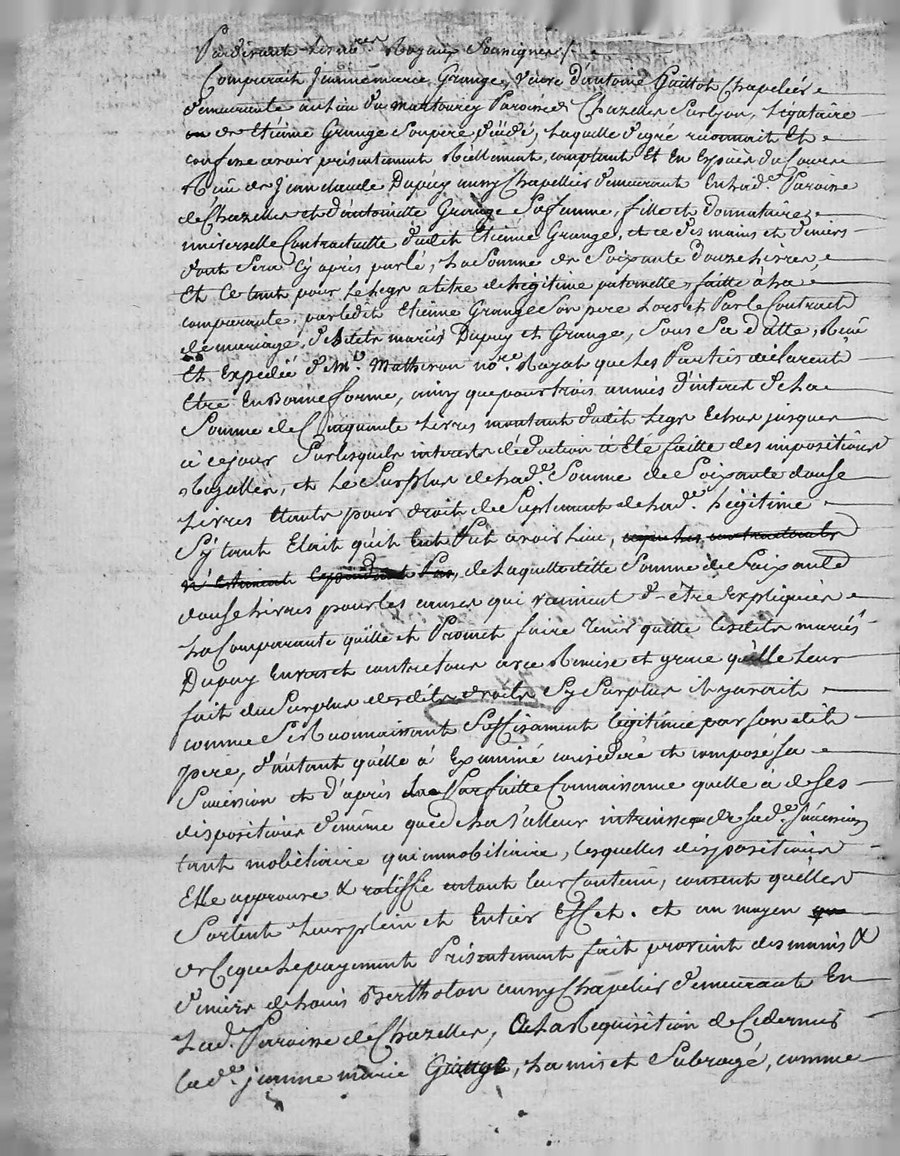 Pardevant Les no.res Royaux Soussignes /.
Comparait Jeanne marie Grange, veuve d'antoine Guillot Chapelier
demeurante au lieu du martourey Paroisse de Chazelles Surlyon, Légataire
de Etienne Grange Sonpere décédé, Laquelle degré reconnait Et
confesse avoir présentement Réellement, comptant Et En Espèces du Cours
Reçu de Jean claude Dupuy aussy Chapellier demeurant En lad.e Paroisse
de Chazelles et d'antoinette Grange Safemme, fille et Donnataire
universelle Contractuelle dudit Etienne Grange, et ce des mains et deniers
dont Sera Cy après parlé, La Somme de Soixante douze livres,
Et Ce tant pour Le Legs a titre de Légitime paternelle, faitte à La
comparante, parledit Etienne Grange Son pere Lors et Par le Contract
de mariage, desdits mariés Dupuy et Grange, Sous Sa datte, Reçu
Et Expédié P. M.e Mathevon no.re Royal que Les Parties déclarent
Etre En Bonne forme, ainsy que pour trois années d'interet de La
Somme de Cinquante Livres montant dudit Legs Echus jusques
à ce jour Surlesquels interets déduction à Eté faitte des impositions
Royalles, et Le Surplus de lad.e Somme de Soixante douse
Livres Etants pour droit de Suplement de lad.e Légitime
Sy tant Etait qu'il Put avoir Lieu,
de Laquelle ditte Somme de Soixante
douse Livres pour les causes qui viennent d'être Expliquées
La Comparante quitte et Promet faire tenir quitte lesdits mariés
Dupuy Envers et contre tous avec Remise et grace qu'elle Leur
fait du Surplus desdits droits Sy Surplus il y avoit
comme Se Reconnaissant Suffisament légitimée par Son dit
Pere, d'autant qu'elle à Examiné considéré et composé Sa
Succession et d'après La Parfaitte Connaissance quelle à de Ses
dispositions de même que de La Valleur intrinseque de Sad.e Succession
tant mobiliaire qu'immobiliaire, lesquelles dispositions
Elle approuve & ratiffie entant Leur Contenu, consent qu'elles
Sortent Leur plein et Entier Effet. et au moyen
de Ceque Lepayement Présentement fait provient des mains &
deniers de Louis Bertholon aussy Chapelier demeurant En
Lad.e Paroisse de Chazelles, à La Requisition de Cedernier
lad.e jeanne marie Grange, La mis et Subrogé, comme